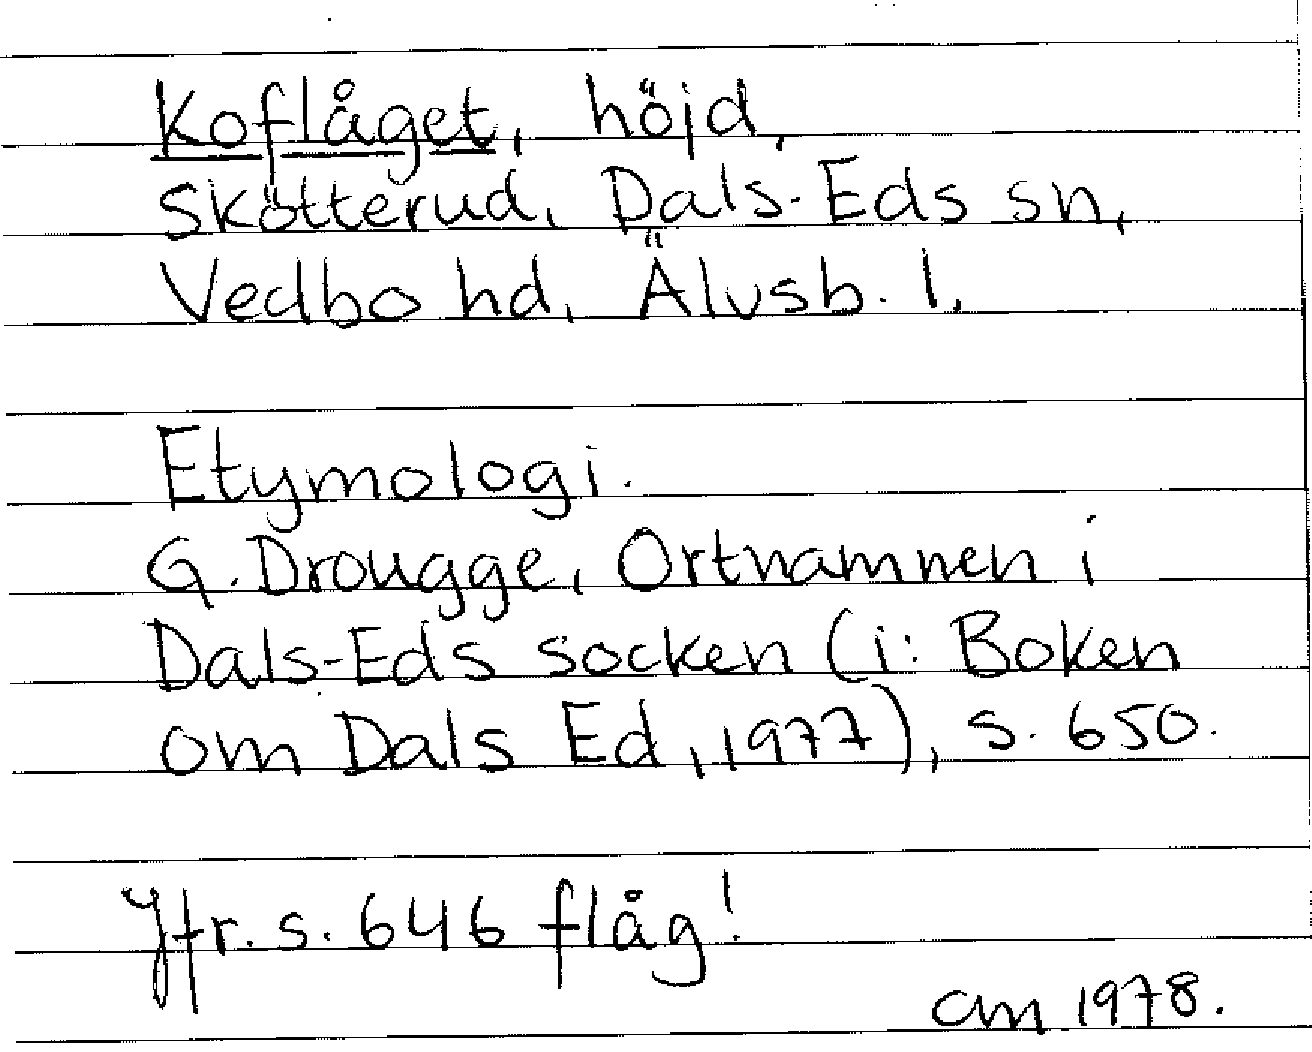 Koflåget, höjd,
Skötterud, Dals-Eds sn,
Vedbo hd, Älvsb. l.
Etymologi.
G. Drougge, Ortnamnen i
Dals-Eds socken (i: Boken
om Dals Ed, 1977), s. 650.
Jfr. s. 646 flåg!
am 1978.